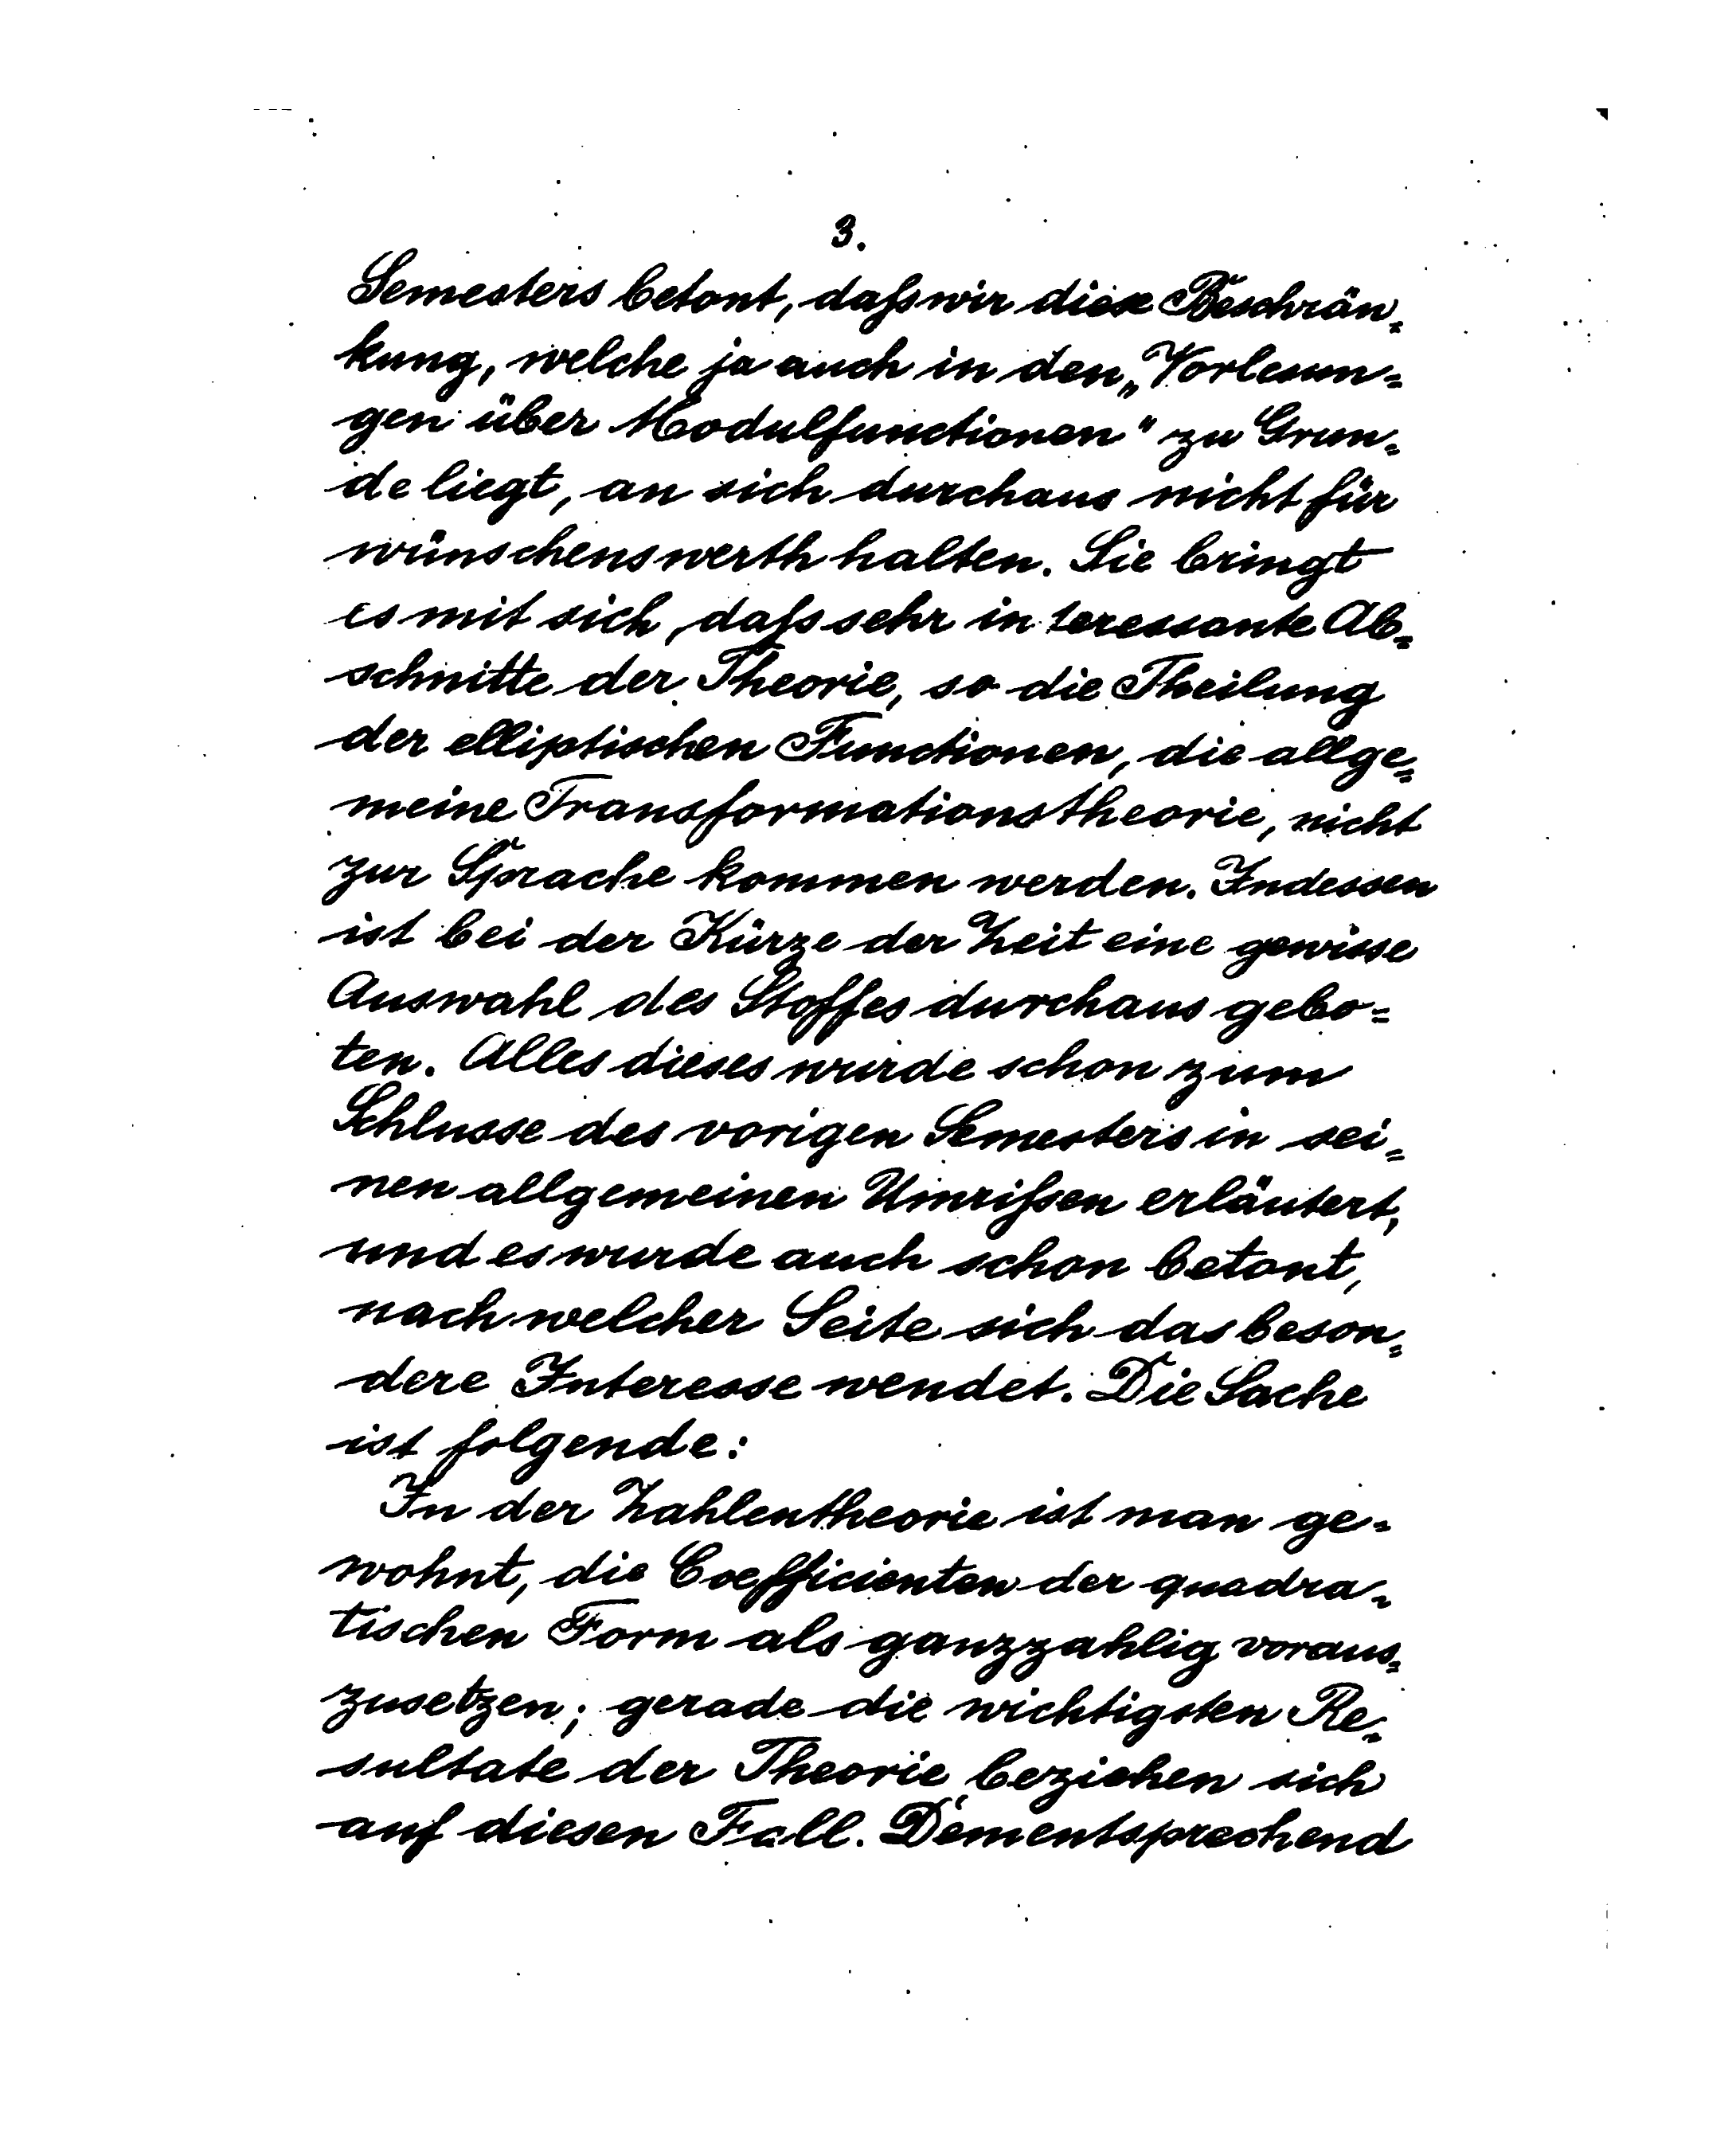 3.
Semesters betont, daſs wir diese Beschrän=
kung, welche ja auch in den „Vorlesun=
gen über Modulfunctionen" zu Grun=
de liegt, an sich durchaus nicht für
wünschenswerth halten. Sie bringt
es mit sich, daſs sehr interessante Ab=
schnitte der Theorie, so die Theilung
der elliptischen Functionen, die allge=
meine Transformationstheorie, nicht
zur Sprache kommen werden. Indessen
ist bei der Kürze der Zeit eine gewisse
Auswahl des Stoffes durchaus gebo=
ten. Alles dieses wurde schon zum
Schlusse des vorigen Semesters in sei=
nen allgemeinen Umriſsen erläutert,
und es wurde auch schon betont,
nach welcher Seite sich das beson=
dere Interesse wendet. Die Sache
ist folgende:
In der Zahlentheorie ist man ge=
wohnt, die Coefficienten der quadra=
tischen Form als ganzzahlig voraus=
zusetzen; gerade die wichtigsten Re=
sultate der Theorie beziehen sich
auf diesen Fall. Dementsprechend